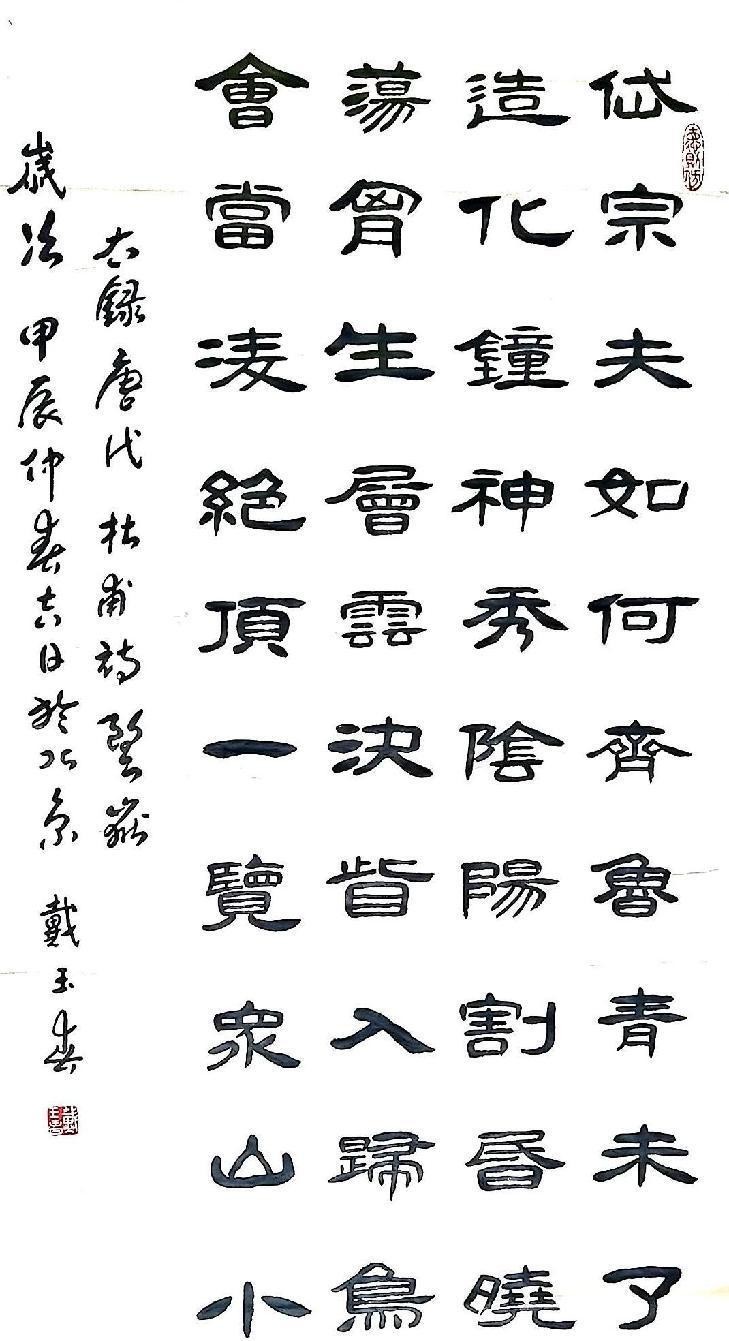 岱宗夫如何齊魯青未了
造化鐘神秀陰陽割昏曉
蕩胷生層雲決眥入歸鳥
會當凌絕頂一覽衆山小
右錄唐代杜甫詩望嶽
歲次甲辰仲春吉日於北京 戴玉春